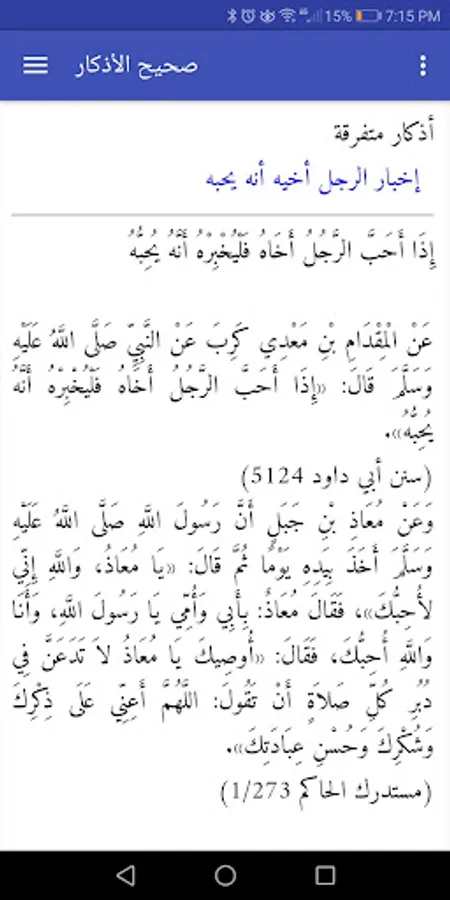 15% 7:15 PM
صحيح الأذكار
أذكار متفرقة
إخبار الرجل أخيه أنه يحبه
إِذَا أَحَبَّ الرَّجُلُ أَخَاهُ فَلْيُخْبِرْهُ أَنَّهُ يُحِبُّهُ
عَنْ الْمِقْدَامِ بْنِ مَعْدِي كَرِبَ عَنْ النَّبِيِّ صَلَّى اللَّهُ عَلَيْهِ
وَسَلَّمَ قَالَ: «إِذَا أَحَبَّ الرَّجُلُ أَخَاهُ فَلْيُخْبِرْهُ أَنَّهُ
يُحِبُّهُ».
(سنن أبي داود 5124)
وَعَنْ مُعَاذِ بْنِ جَبَلٍ أَنَّ رَسُولَ اللَّهِ صَلَّى اللَّهُ عَلَيْهِ
وَسَلَّمَ أَخَذَ بِيَدِهِ يَوْمًا ثُمَّ قَالَ: «يَا مُعَاذُ، وَاللَّهِ إِنِّي
لأُحِبُّكَ»، فَقَالَ مُعَاذٌ: بِأَبِي وَأُمِّي يَا رَسُولَ اللَّهِ، وَأَنَا
وَاللَّهِ أُحِبُّكَ، فَقَالَ: «أُوصِيكَ يَا مُعَاذُ لاَ تَدَعَنَّ فِي
دُبُرِ كُلِّ صَلاَةٍ أَنْ تَقُولَ: اللَّهُمَّ أَعِنِّي عَلَى ذِكْرِكَ
وَشُكْرِكَ وَحُسْنِ عِبَادَتِكَ».
(مستدرك الحاكم 1/273)